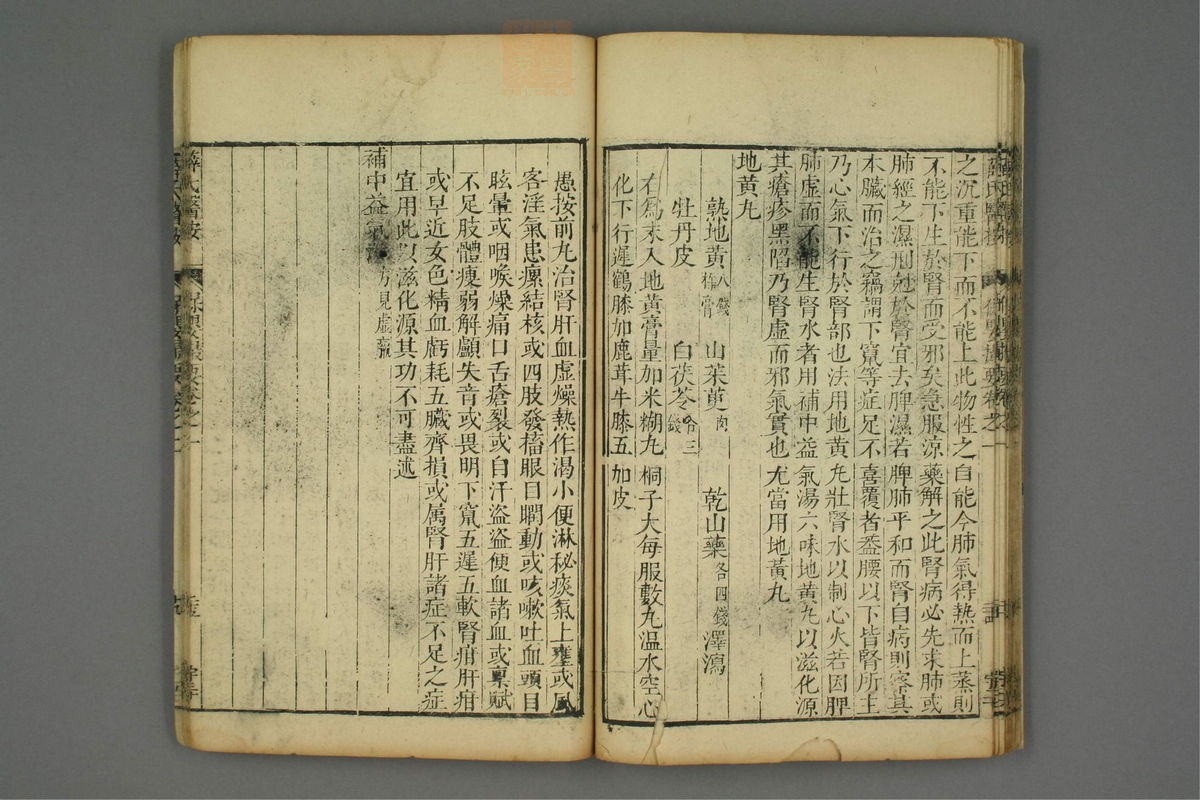 之沉重能下而不能上此物性之自能今肺氣得熱而上蒸則
不能下生於腎而受邪矣急服涼藥解之此腎病必先求肺或
肺經之濕刑尅於腎宜去脾濕若脾肺平和而腎自病則察其
本臟而治之竊謂下竄等症足不喜覆者葢腰以下皆腎所主
乃心氣下行於腎部也法用地黃丸壯腎水以制心火若因脾
肺虛而不能生腎水者用補中益氣湯六味地黃丸以滋化源
其瘡疹黑陷乃腎虛而邪氣實也尤當用地黃丸
地黃丸
熟地黃八錢杵膏 山茱萸肉 乾山藥各四錢 澤瀉
牡丹皮 白茯苓各三錢
右為末入地黃膏量加米糊丸桐子大每服數丸温水空心
化下行遲鶴膝加鹿茸牛膝五加皮
愚按前丸治腎肝血虛燥熱作渴小便淋秘痰氣上壅或風
客淫氣患瘰結核或四肢發搐眼目瞤動或咳嗽吐血頭目
眩暈或咽喉燥痛口舌瘡裂或自汗盜盗便血諸血或稟賦
不足肢體瘦弱解顱失音或畏明下竄五遲五軟腎疳肝疳
或早近女色精血虧耗五臟齊損或属腎肝諸症不足之症
宜用此以滋化源其功不可盡述
補中益氣湯方見虛羸
薛氏醫按
保嬰撮要卷之一